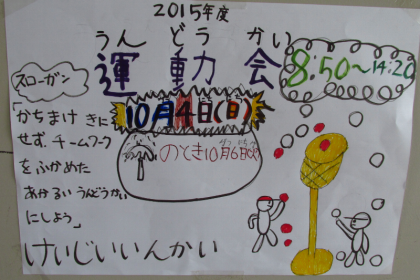 2015年度
うん どう かい
運動会
8:50〜14:20
スローガン
10月4日(日)
「かちまけ きに
せず、チームワーク
をふかめた
あかるい うんどうかい
にしよう」
のとき10月6日(火)
けいじいいんかい